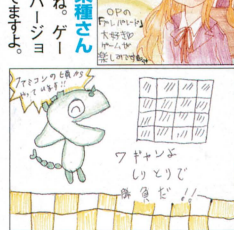 種さん
ね。ゲー
バージョ
ますよ。
OPの
大好き♡
ゲームが
楽しみですね。
ファミコンの頃から
やってます!!
ワギャンよ
しりとりで
勝負だ!!